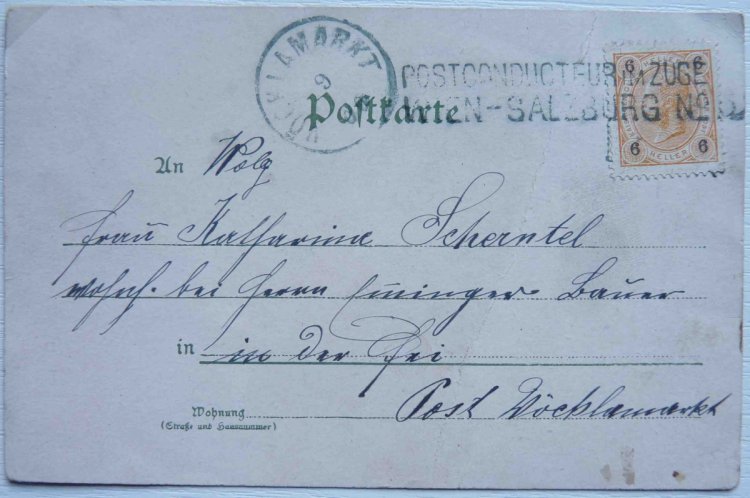 VÖCKLAMARKT
9
POSTCONDUCTEUR IM ZUGE
WIEN-SALZBURG No
6 6
6 6
HELLER
Postkarte
An Wolg
Frau Katharina Scherntel
wohnh. bei Herrn Eminger Bauer
in in der Frei
Post Vöcklamarkt
Wohnung
(Straße und Hausnummer)